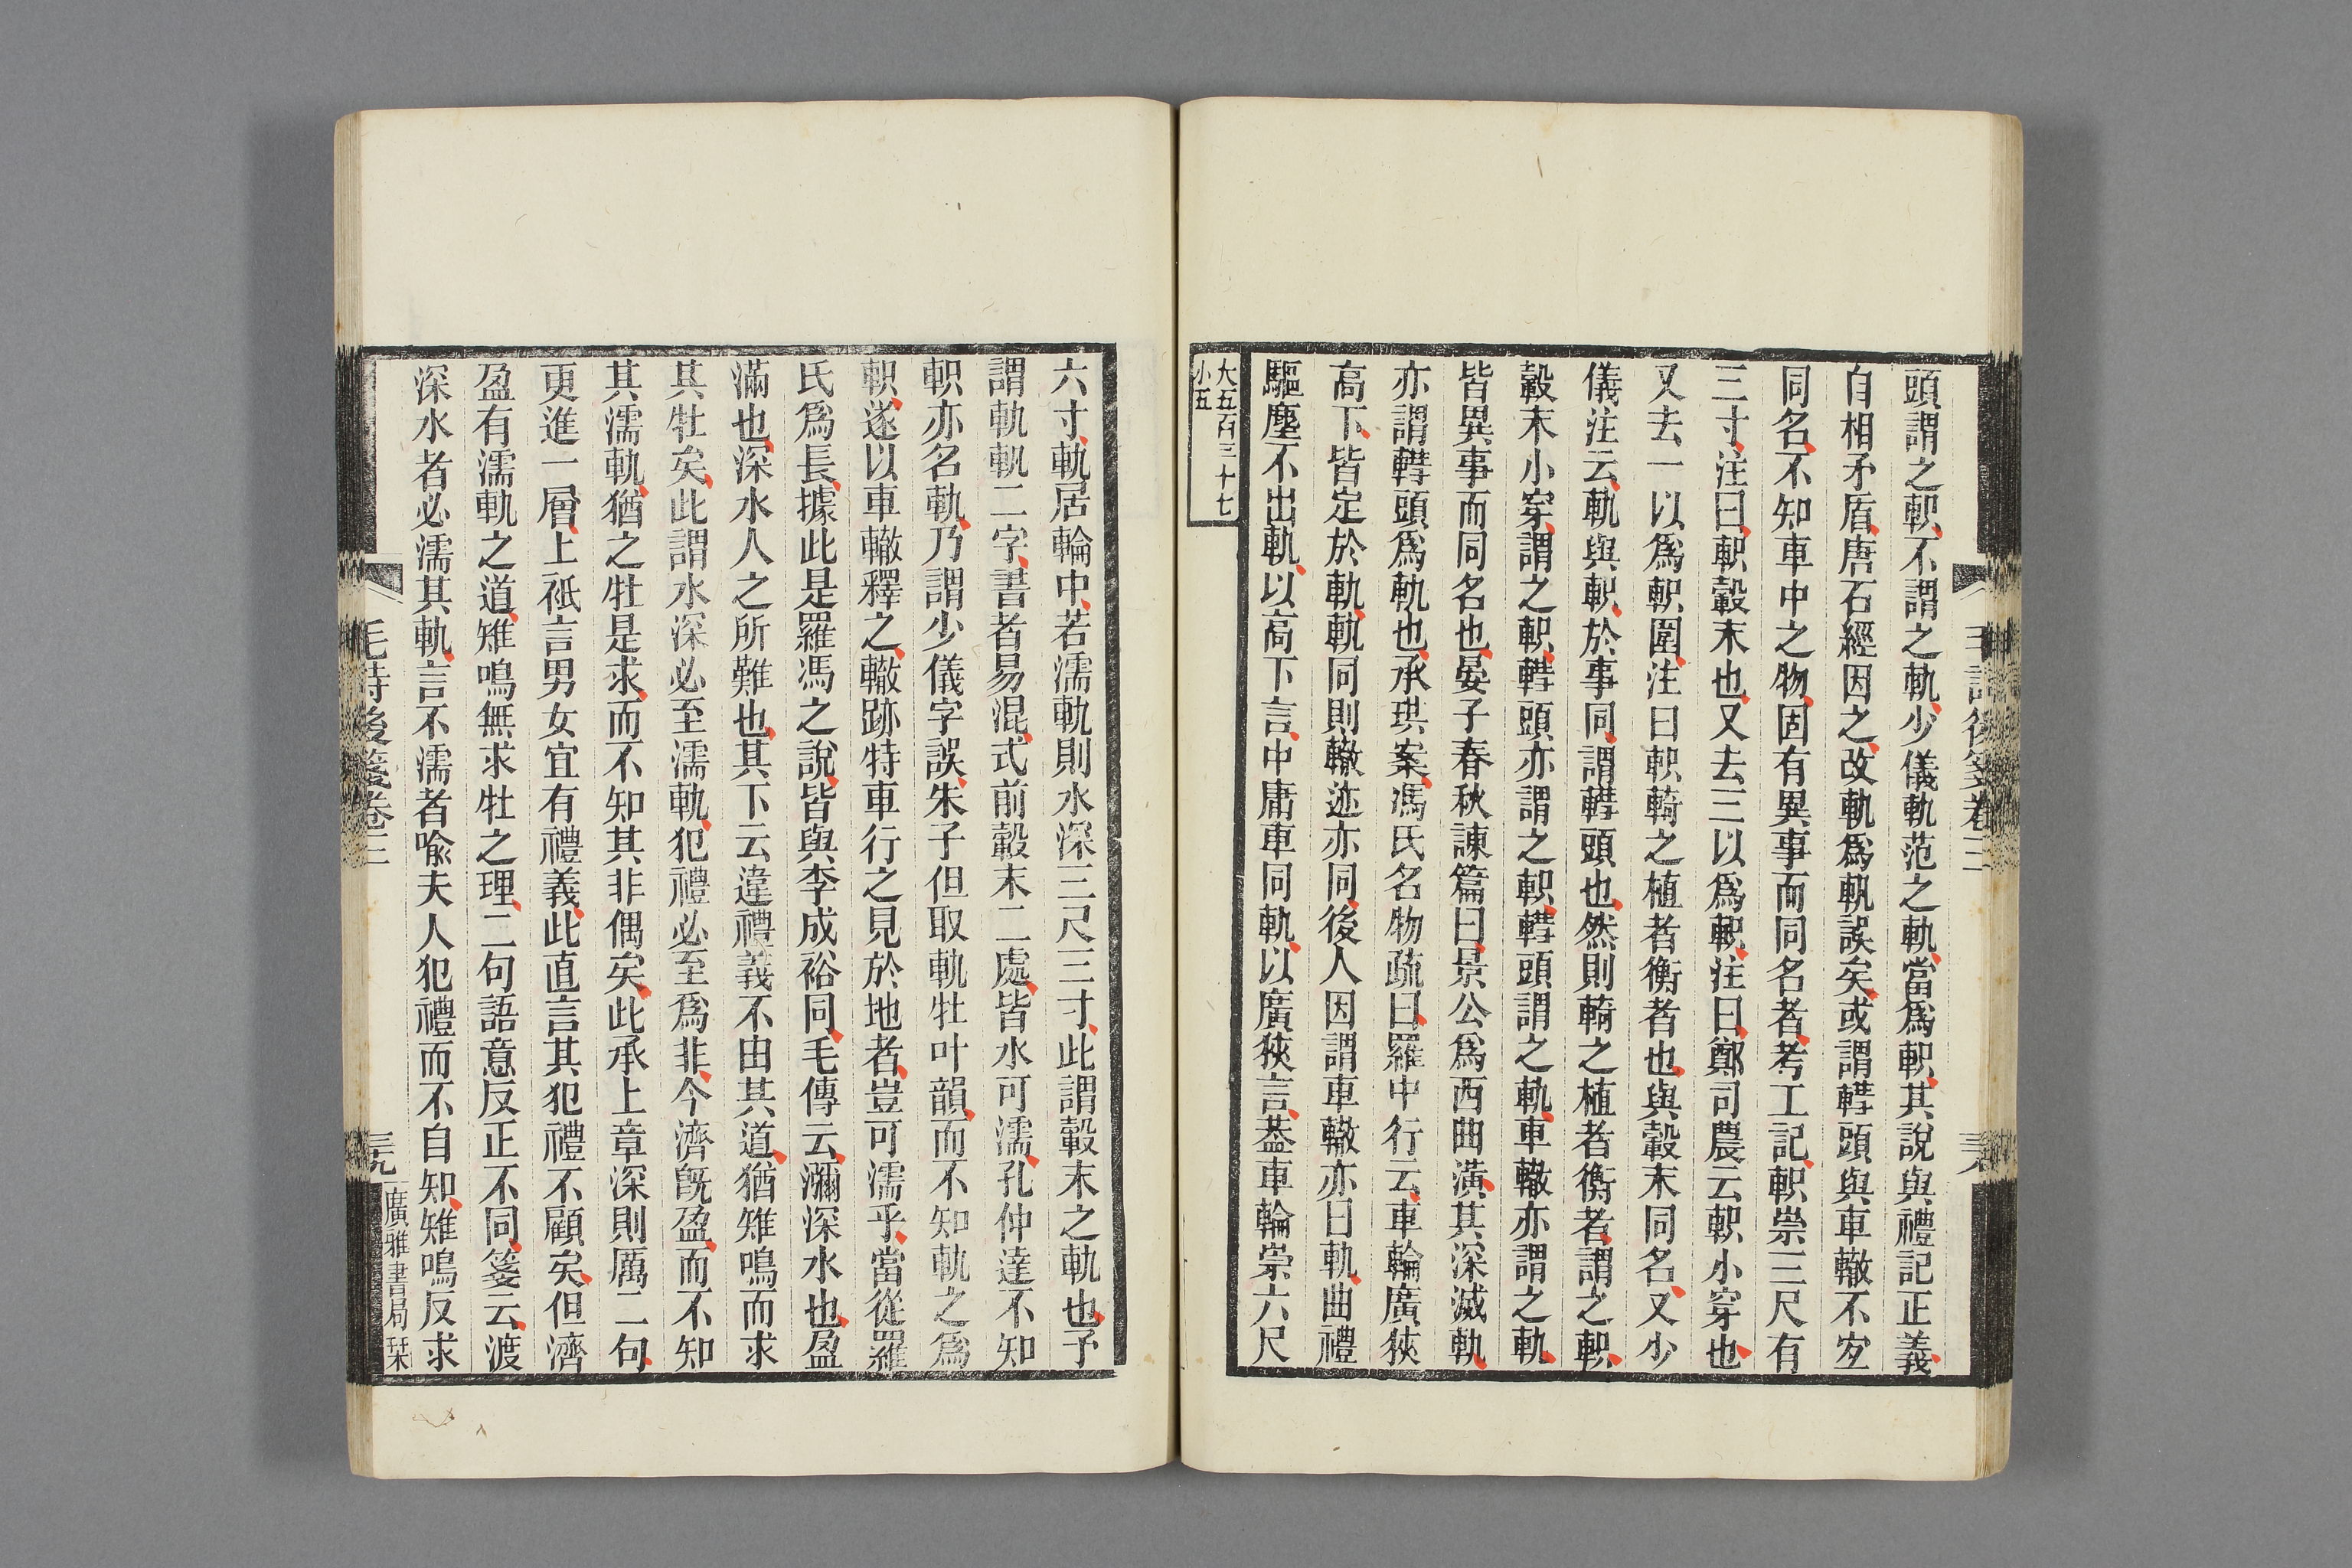 頭謂之軹不謂之軌少儀軌范之軌當爲軹其說與禮記正義
自相矛盾唐石經因之改軌爲軓誤矣或謂轊頭與車轍不宜
同名不知車中之物固有異事而同名者考工記軹崇三尺有
三寸注曰軹轂末也又去三以爲軹注曰鄭司農云軹小穿也
又去一以爲軹圍注曰軹輢之植者衡者也與轂末同名又少
儀注云軌與軹於事同謂轊頭也然則輢之植者衡者謂之軹
轂末小穿謂之軹轊頭亦謂之軹轊頭謂之軌車轍亦謂之軌
皆異事而同名也晏子春秋諫篇曰景公爲西曲潢其深滅軌
亦謂轊頭爲軌也承珙案馮氏名物疏曰羅中行云車輪廣狹
高下皆定於軌軌同則轍迹亦同後人因謂車轍亦曰軌曲禮
驅塵不出軌以高下言中庸車同軌以廣狹言葢車輪崇六尺
大五百三十七
小五
毛詩後箋卷三
六寸軌居輪中若濡軌則水深三尺三寸此謂轂末之軌也予
謂軌軓二字書者易混式前轂末二處皆水可濡孔仲達不知
軹亦名軌乃謂少儀字誤朱子但取軌牡叶韻而不知軌之爲
軹遂以車轍釋之轍跡特車行之見於地者豈可濡乎當從羅
氏爲長據此是羅馮之說皆與李成裕同毛傳云瀰深水也盈
滿也深水人之所難也其下云違禮義不由其道猶雉鳴而求
其牡矣此謂水深必至濡軌犯禮必至爲非今濟旣盈而不知
其濡軌猶之牡是求而不知其非偶矣此承上章深則厲二句
更進一層上祇言男女宜有禮義此直言其犯禮不顧矣但濟
盈有濡軌之道雉鳴無求牡之理二句語意反正不同箋云渡
深水者必濡其軌言不濡者喩夫人犯禮而不自知雉鳴反求
毛詩後箋卷三
三九
廣雅書局栞